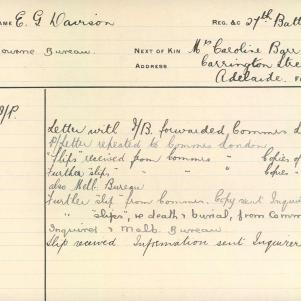 NAME E. G. Davison REG. &c 27th Batt
Bureau. NEXT OF KIN Mrs Caroline Barr
ADDRESS Carrington Stre
Adelaide.
Letter with I/B. forwarded, Commes L
P/Letter repeated to Commes London
"Slips" received from Commes " Copies of
Further "slips" " " " Copies "
also Melb. Bureau
Further slip from Commes. Copy sent Inquir
" "slips", re death & burial, from Comm
Inquirer & Melb. Bureau
Slip received Information sent Inquirer